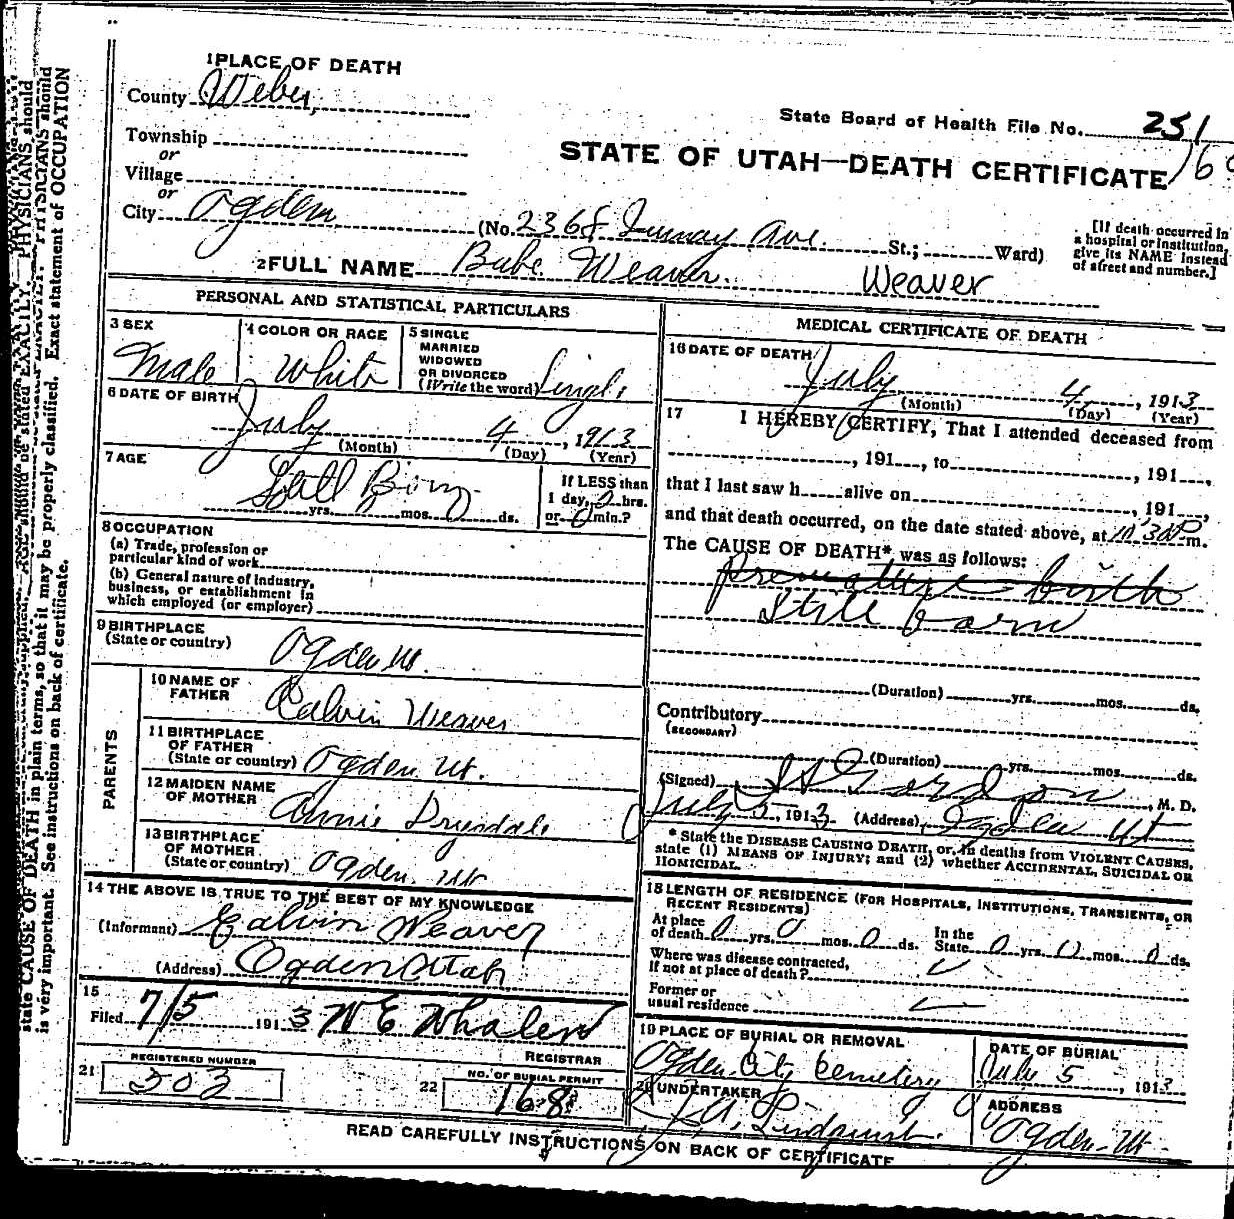 1 PLACE OF DEATH
County Weber
State Board of Health File No. 251
Township
or
STATE OF UTAH—DEATH CERTIFICATE
Village
or
City Ogden (No. 2368 Ave. St.; Ward)
[If death occurred in a hospital or institution, give its NAME instead of street and number.]
2 FULL NAME Babe Weaver. Weaver
PERSONAL AND STATISTICAL PARTICULARS
3 SEX
Male
4 COLOR OR RACE
White
5 SINGLE
MARRIED
WIDOWED
OR DIVORCED
(Write the word) Single
6 DATE OF BIRTH
July 4, 1913
(Month) (Day) (Year)
7 AGE
Still Born
yrs. mos. 0 ds.
If LESS than
1 day, 0 hrs.
or 0 min.?
8 OCCUPATION
(a) Trade, profession or
particular kind of work
(b) General nature of industry,
business, or establishment in
which employed (or employer)
9 BIRTHPLACE
(State or country) Ogden Ut.
PARENTS
10 NAME OF
FATHER Calvin Weaver
11 BIRTHPLACE
OF FATHER
(State or country) Ogden Ut.
12 MAIDEN NAME
OF MOTHER Annie Drysdale
13 BIRTHPLACE
OF MOTHER
(State or country) Ogden Ut
14 THE ABOVE IS TRUE TO THE BEST OF MY KNOWLEDGE
(Informant) Calvin Weaver
(Address) Ogden Utah
15
Filed 7/5 1913 W E Whalen
REGISTRAR
21 REGISTERED NUMBER
22 NO. OF BURIAL PERMIT
168
MEDICAL CERTIFICATE OF DEATH
16 DATE OF DEATH
July 4, 1913
(Month) (Day) (Year)
17 I HEREBY CERTIFY, That I attended deceased from
, 191 , to , 191 ,
that I last saw h alive on , 191 ,
and that death occurred, on the date stated above, at 10:30 P m.
The CAUSE OF DEATH* was as follows:
Premature birth
Still born
(Duration) yrs. mos. ds.
Contributory
(SECONDARY)
(Duration) yrs. mos. ds.
(Signed) Gordon, M. D.
July 5, 1913 (Address) Ogden Ut
* State the DISEASE CAUSING DEATH, or, in deaths from VIOLENT CAUSES,
state (1) MEANS OF INJURY; and (2) whether ACCIDENTAL, SUICIDAL OR
HOMICIDAL.
18 LENGTH OF RESIDENCE (FOR HOSPITALS, INSTITUTIONS, TRANSIENTS, OR
RECENT RESIDENTS)
At place of death 0 yrs. 0 mos. 0 ds. In the State 0 yrs. 0 mos. 0 ds.
Where was disease contracted,
If not at place of death?
Former or
usual residence
19 PLACE OF BURIAL OR REMOVAL
Ogden City Cemetery
DATE OF BURIAL
July 5, 1913
20 UNDERTAKER
Lindquist
ADDRESS
Ogden Ut
READ CAREFULLY INSTRUCTIONS ON BACK OF CERTIFICATE
state CAUSE OF DEATH in plain terms, so that it may be properly classified. Exact statement of OCCUPATION
is very important. See instructions on back of certificate.